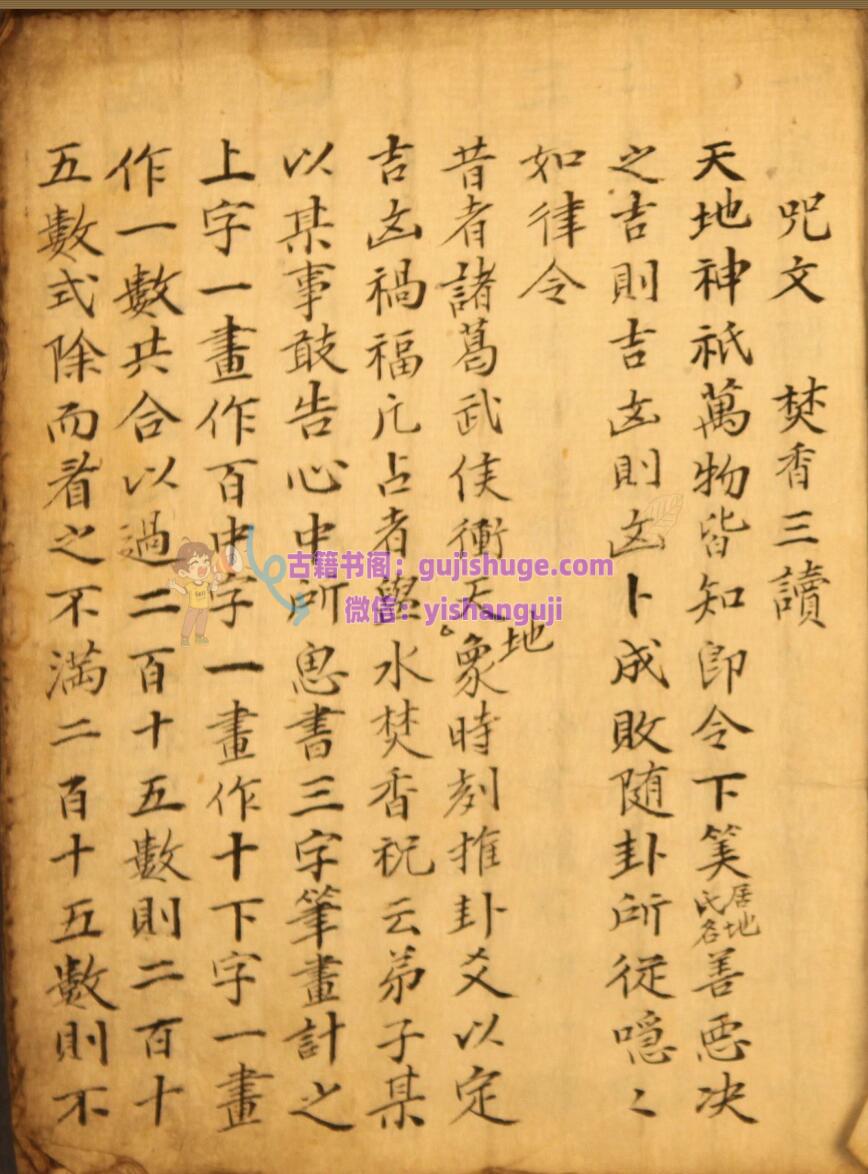 咒文　焚香三讀
天地神祇萬物皆知即令下筭居地氏名善惡决
之吉則吉凶則凶卜成敗随卦所従噫〻
如律令
昔者諸葛武侯衝天地象時刻推卦爻以定
吉凶禍福凢占者盥水焚香祝云弟子某
以某事敢告心中所思書三字筆畫計之
上字一畫作百中字一畫作十下字一畫
作一數共合以過二百十五數則二百十
五數式除而看之不滿二百十五數則不
古籍书阁：gujishuge.com
微信：yishanguji